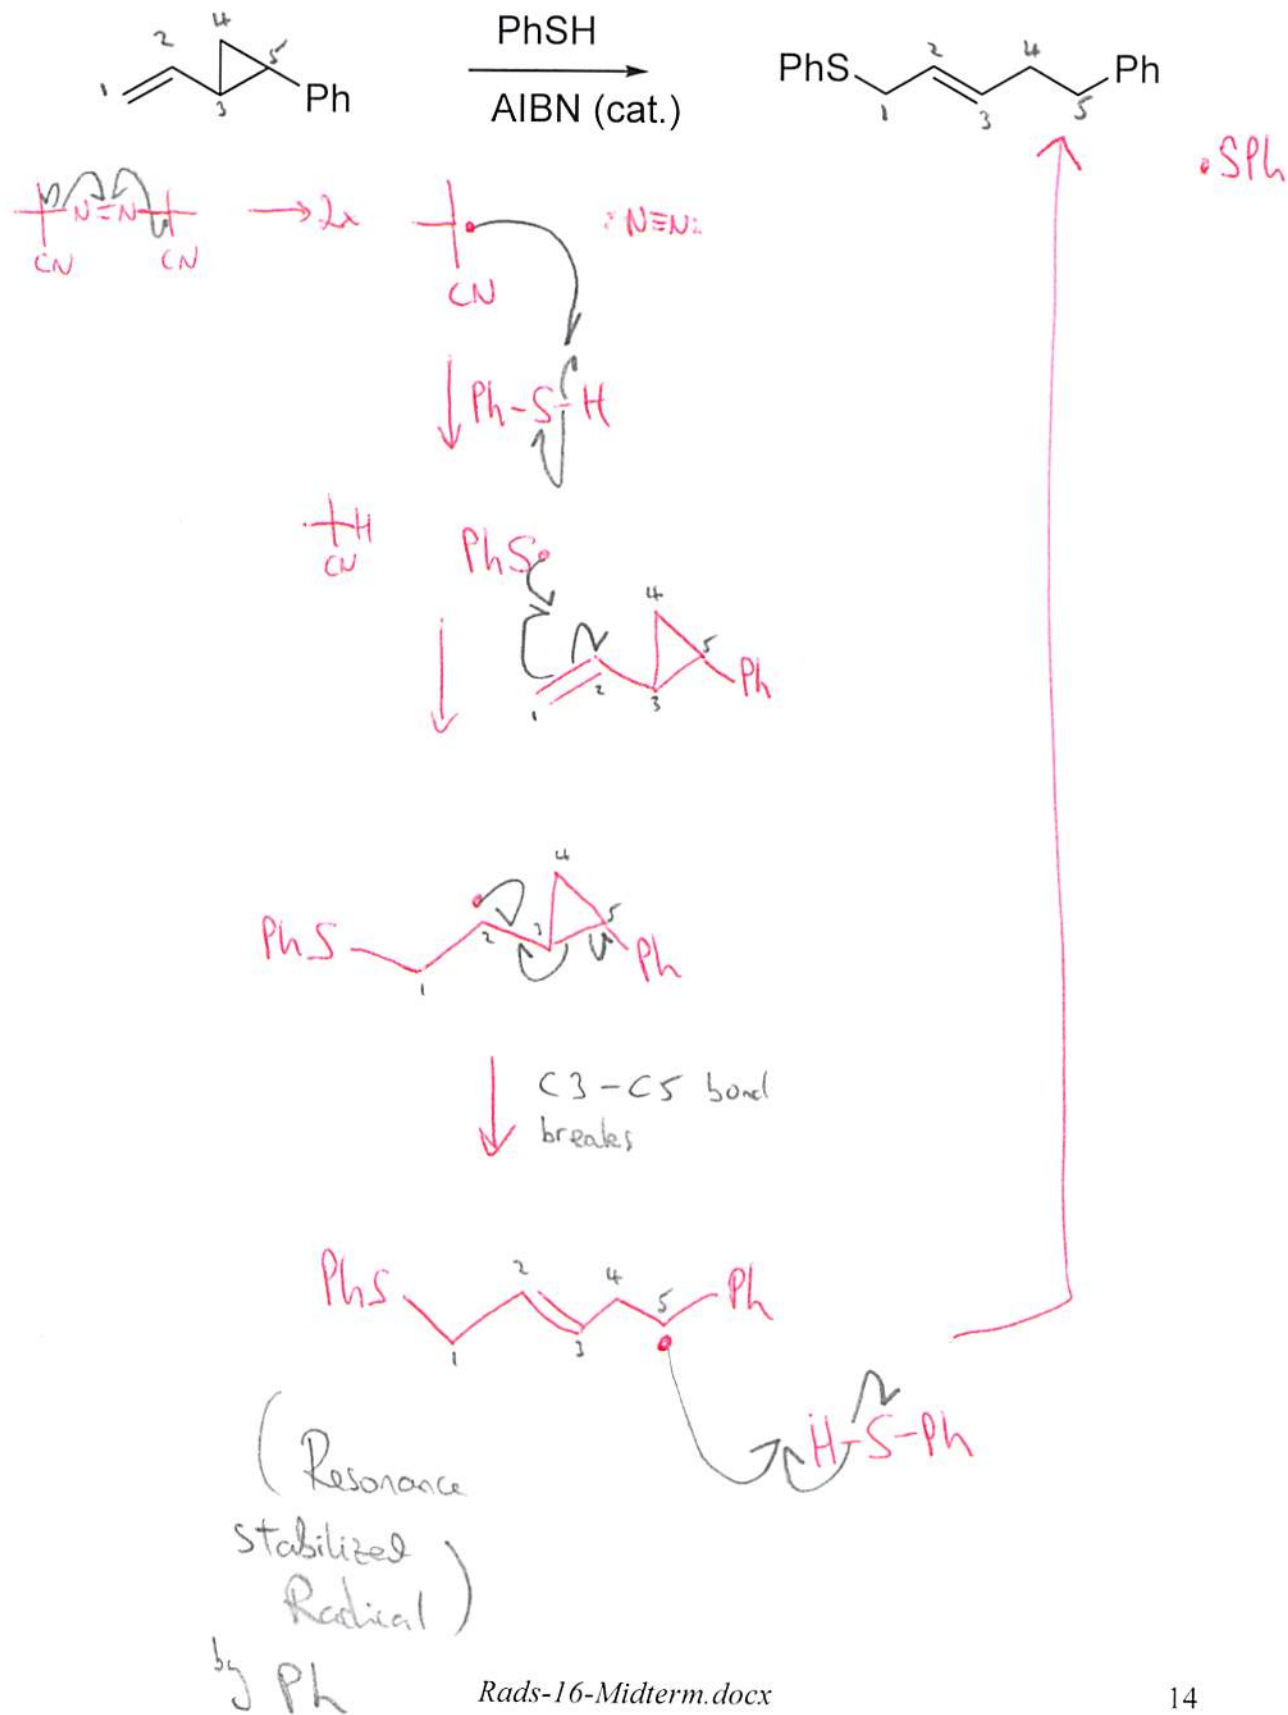 PhSH
AIBN (cat.)
1 2 3 4 5 Ph
PhS 1 2 3 4 5 Ph
•SPh
N=N
CN CN
→ 2x
CN
:N≡N:
Ph-S-H
H
CN
PhS•
1 2 3 4 5 Ph
PhS 1 2 3 4 5 Ph
C3-C5 bond
breaks
PhS 1 2 3 4 5 Ph
H-S-Ph
(Resonance
stabilized
Radical)
by Ph
Rads-16-Midterm.docx
14